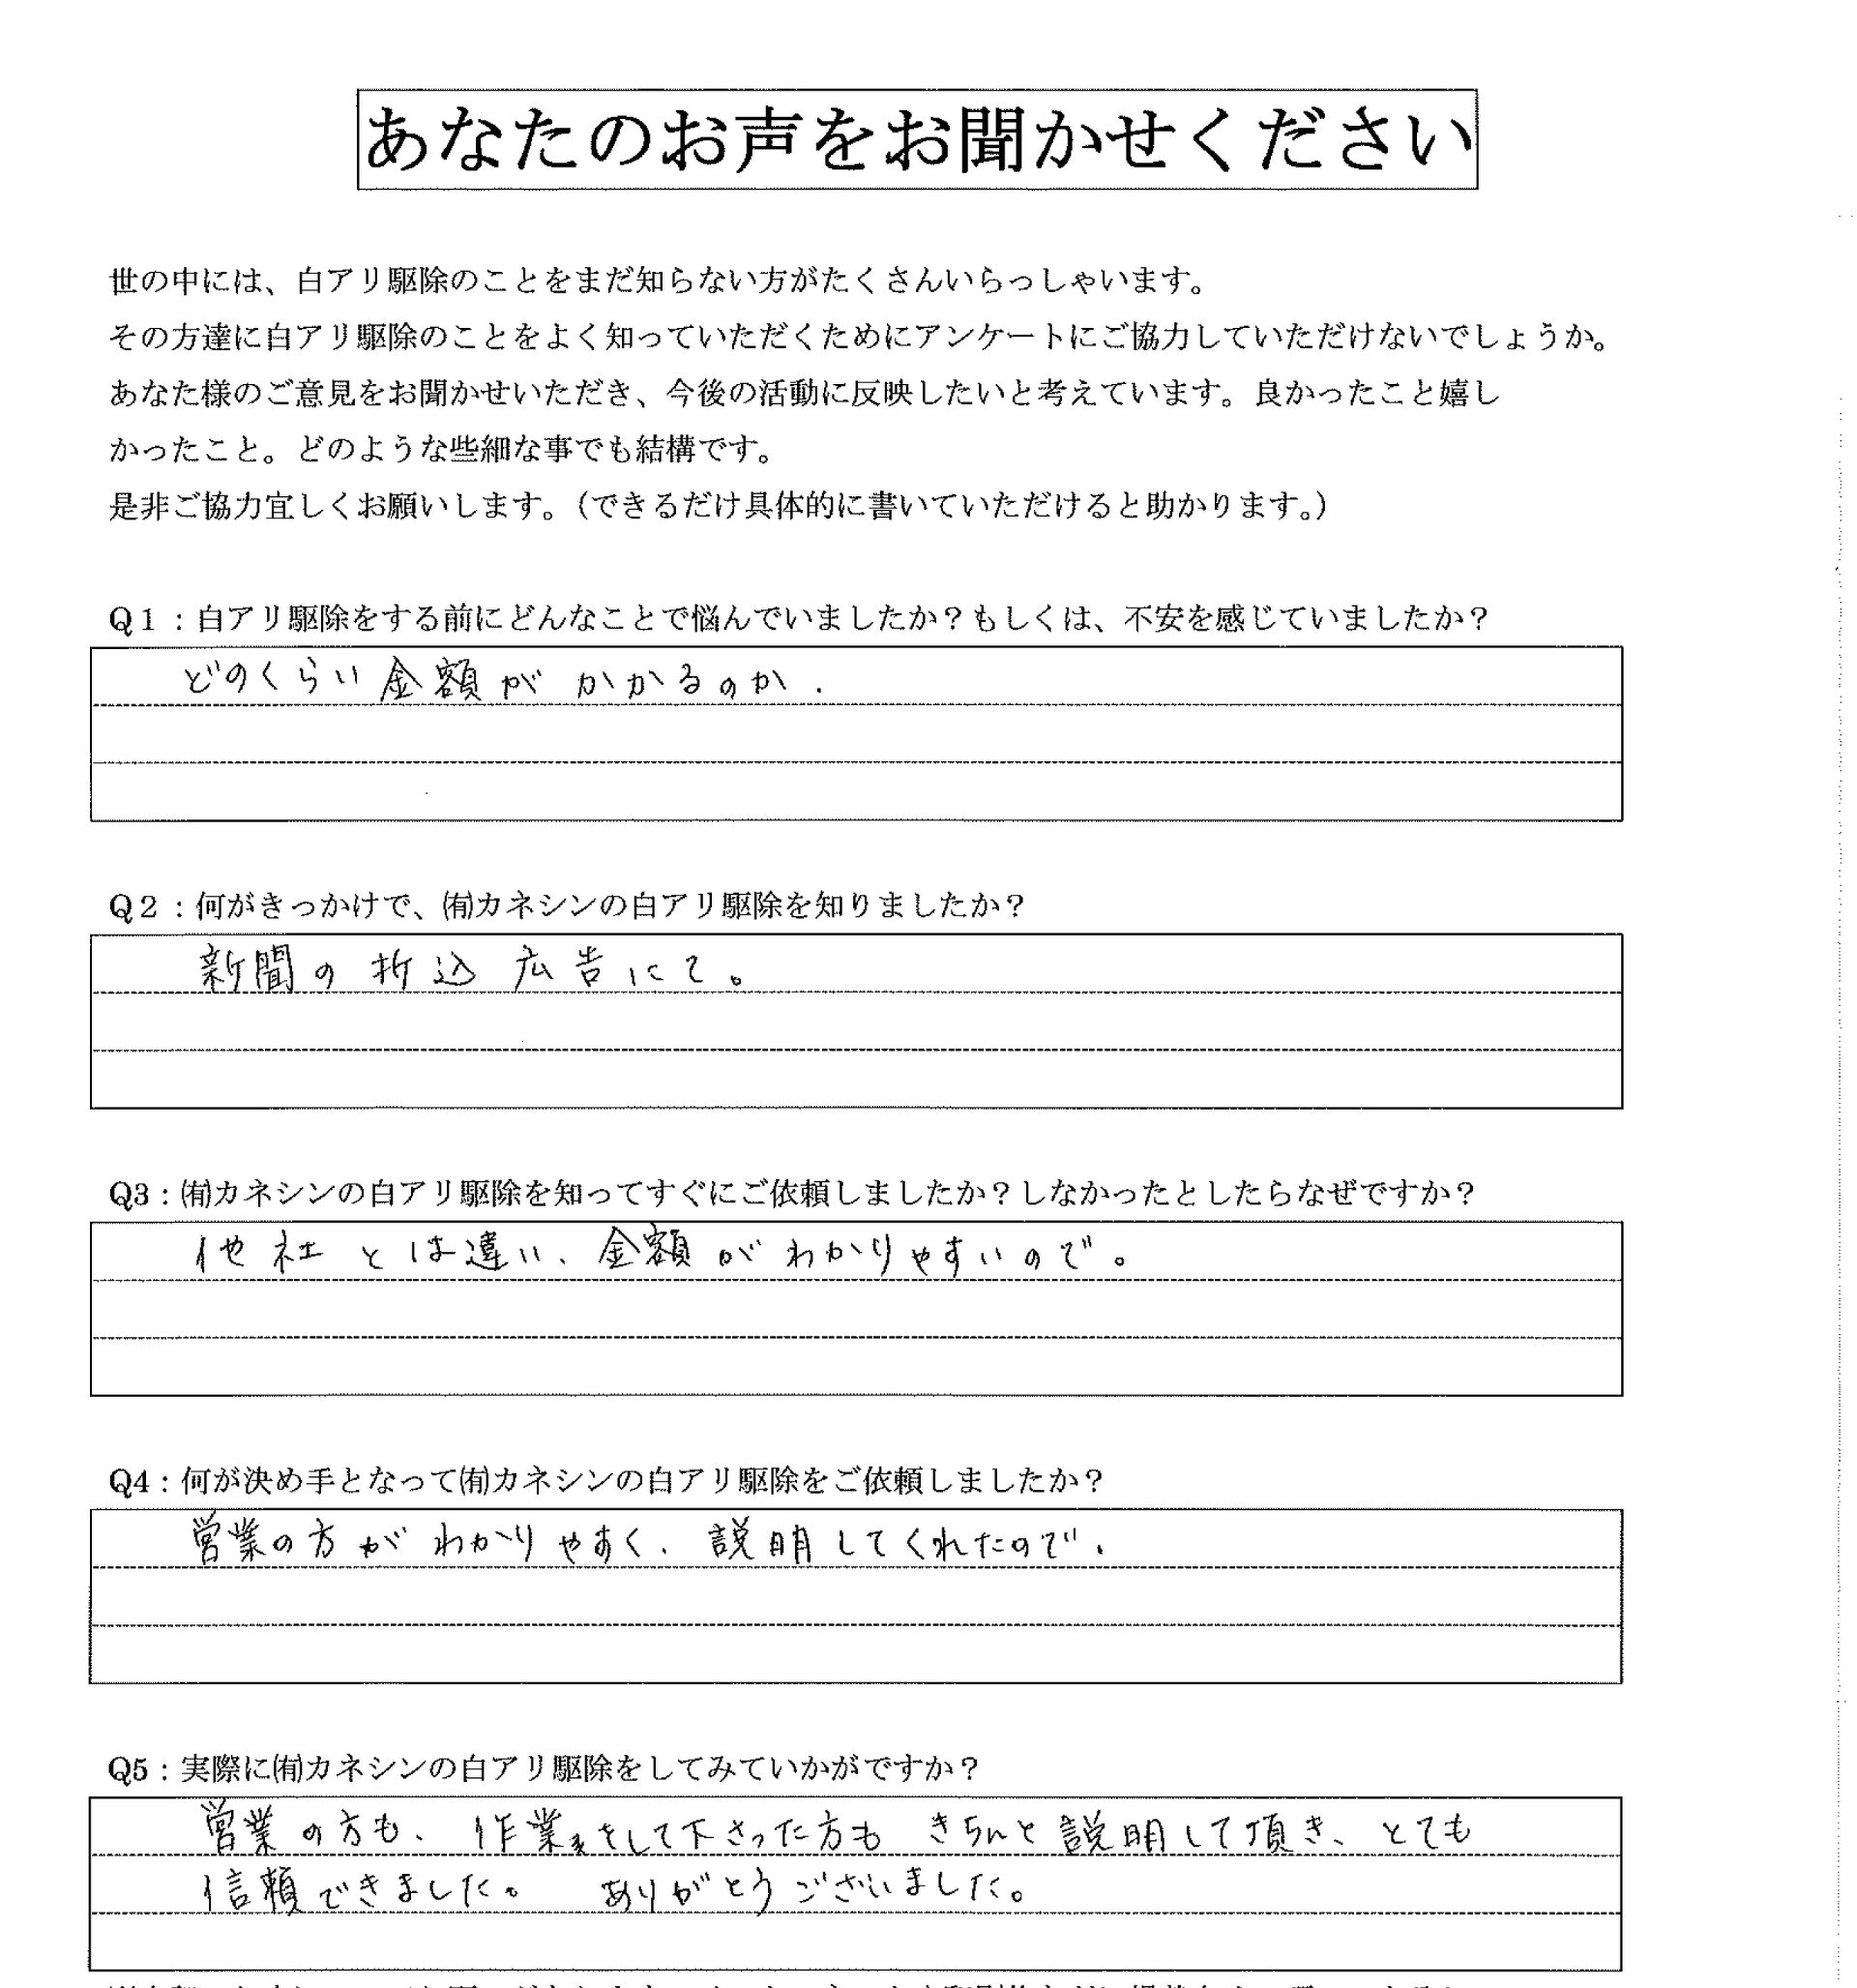 あなたのお声をお聞かせください
世の中には、白アリ駆除のことをまだ知らない方がたくさんいらっしゃいます。
その方達に白アリ駆除のことをよく知っていただくためにアンケートにご協力していただけないでしょうか。
あなた様のご意見をお聞かせいただき、今後の活動に反映したいと考えています。良かったこと嬉し
かったこと。どのような些細な事でも結構です。
是非ご協力宜しくお願いします。（できるだけ具体的に書いていただけると助かります。）
Q１：白アリ駆除をする前にどんなことで悩んでいましたか？もしくは、不安を感じていましたか？
どのくらい金額がかかるのか．
Q２：何がきっかけで、㈲カネシンの白アリ駆除を知りましたか？
新聞の折込広告にて。
Q3：㈲カネシンの白アリ駆除を知ってすぐにご依頼しましたか？しなかったとしたらなぜですか？
他社とは違い、金額がわかりやすいので。
Q4：何が決め手となって㈲カネシンの白アリ駆除をご依頼しましたか？
営業の方がわかりやすく、説明してくれたので．
Q5：実際に㈲カネシンの白アリ駆除をしてみていかがですか？
営業の方も、作業をして下さった方もきちんと説明して頂き、とても
信頼できました。 ありがとうございました。